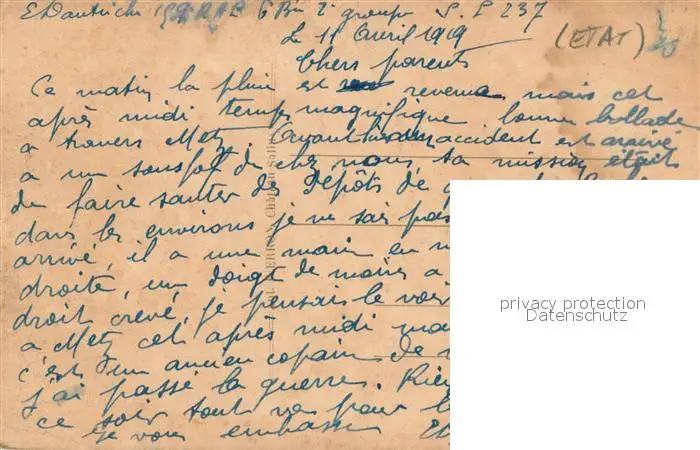 E Dautriche 6 Bie 2e groupe S. P 237
(ETAT)
Le 11 Avril 1919
Chers parents
Ce matin la pluie est revenue mais cet
après midi temps magnifique bonne ballade
a travers Metz. Avant accident est arrivé
a un sousoff de chez nous sa mission était
de faire sauter des dépôts de
dans les environs je ne sais pas
arrivé, il a une main en
droite, un doigt de moins a
droit crevé, je pensais le voir
a Metz cet après midi
c'est un ancien copain de
j'ai passé la guerre. Rien
ce soir tout va pour le
je vous embrasse
privacy protection
Datenschutz